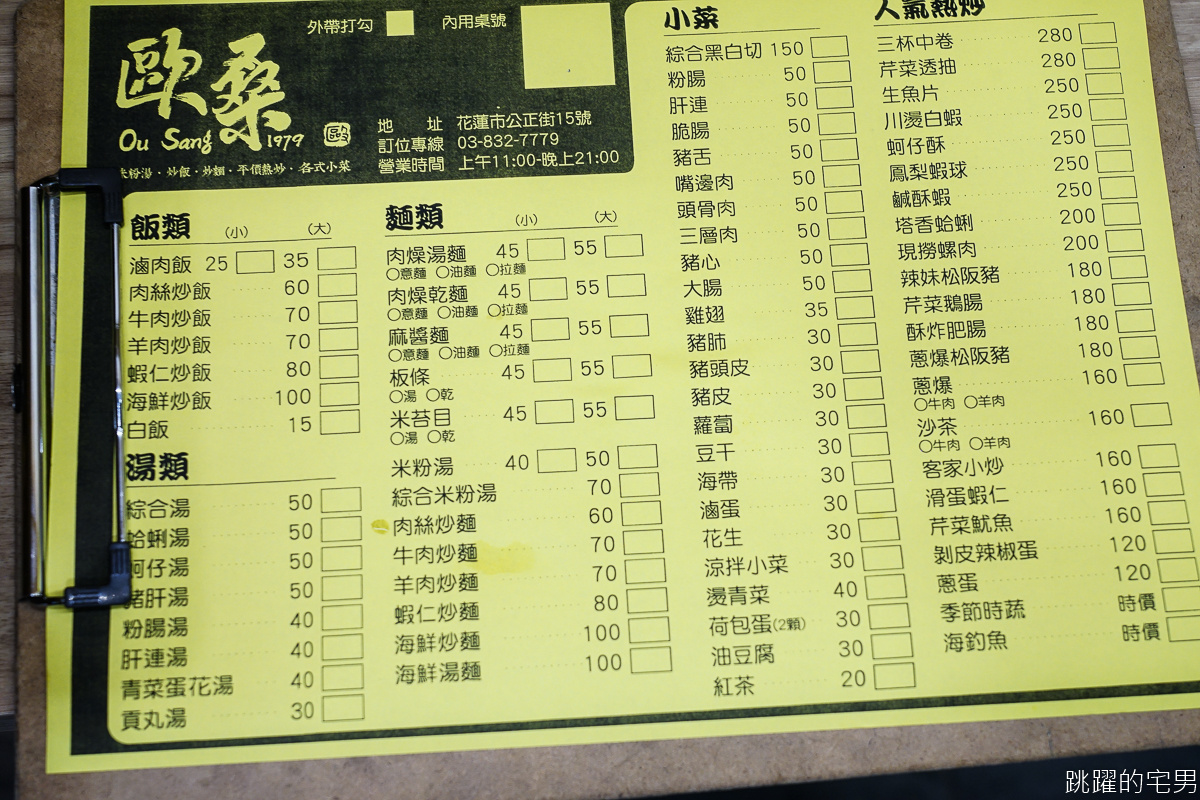 外帶打勾
內用桌號
歐桑
Ou Sang 1979
歐
米粉湯·炒飯·炒麵·平價熱炒·各式小菜
地 址 花蓮市公正街15號
訂位專線 03-832-7779
營業時間 上午11:00-晚上21:00
飯類 (小) (大)
滷肉飯 25 35
肉絲炒飯 60
牛肉炒飯 70
羊肉炒飯 70
蝦仁炒飯 80
海鮮炒飯 100
白飯 15
湯類
綜合湯 50
蛤蜊湯 50
蚵仔湯 50
豬肝湯 50
粉腸湯 40
肝連湯 40
青菜蛋花湯 40
貢丸湯 30
麵類 (小) (大)
肉燥湯麵 45 55
○意麵 ○油麵 ○拉麵
肉燥乾麵 45 55
○意麵 ○油麵 ○拉麵
麻醬麵 45 55
○意麵 ○油麵 ○拉麵
板條 45 55
○湯 ○乾
米苔目 45 55
○湯 ○乾
米粉湯 40 50
綜合米粉湯 70
肉絲炒麵 60
牛肉炒麵 70
羊肉炒麵 70
蝦仁炒麵 80
海鮮炒麵 100
海鮮湯麵 100
小菜
綜合黑白切 150
粉腸 50
肝連 50
脆腸 50
豬舌 50
嘴邊肉 50
頭骨肉 50
三層肉 50
豬心 50
大腸 50
雞翅 35
豬肺 30
豬頭皮 30
豬皮 30
蘿蔔 30
豆干 30
海帶 30
滷蛋 30
花生 30
涼拌小菜 30
燙青菜 40
荷包蛋(2顆) 30
油豆腐 30
紅茶 20
人氣熱炒
三杯中卷 280
芹菜透抽 280
生魚片 250
川燙白蝦 250
蚵仔酥 250
鳳梨蝦球 250
鹹酥蝦 250
塔香蛤蜊 200
現撈螺肉 200
辣妹松阪豬 180
芹菜鵝腸 180
酥炸肥腸 180
蔥爆松阪豬 180
蔥爆 160
○牛肉 ○羊肉
沙茶 160
○牛肉 ○羊肉
客家小炒 160
滑蛋蝦仁 160
芹菜魷魚 160
剝皮辣椒蛋 120
蔥蛋 120
季節時蔬 時價
海釣魚 時價
跳躍的宅男